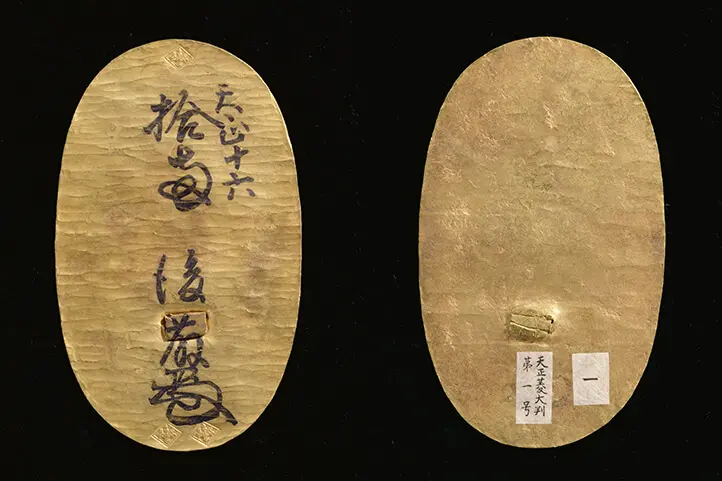 天正十六
拾両 後藤
天正菱大判
第一号
一